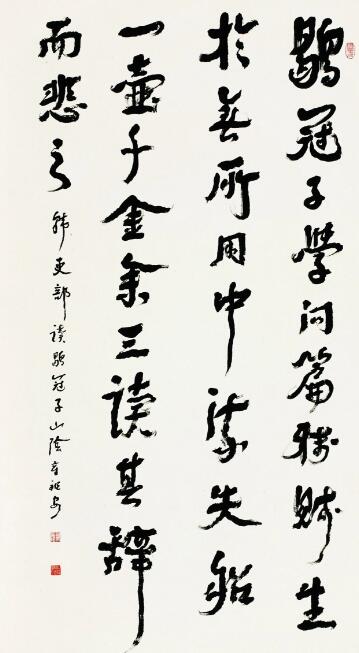 鶡冠子學问篇稱賤生
於無所用中流失船
一壺千金余三读其辭
而悲之
韩吏部读鶡冠子山陰章祖安